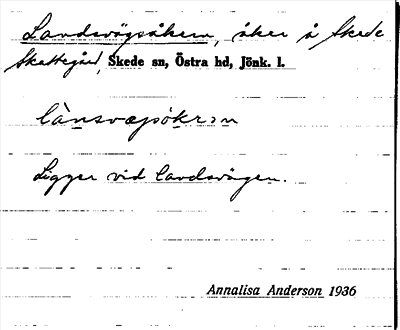 Landsvägsåkern, åker å Skede
Skattegård, Skede sn, Östra hd, Jönk. l.
lànsvægsòkrɔn
Ligger vid landsvägen.
Annalisa Anderson 1936